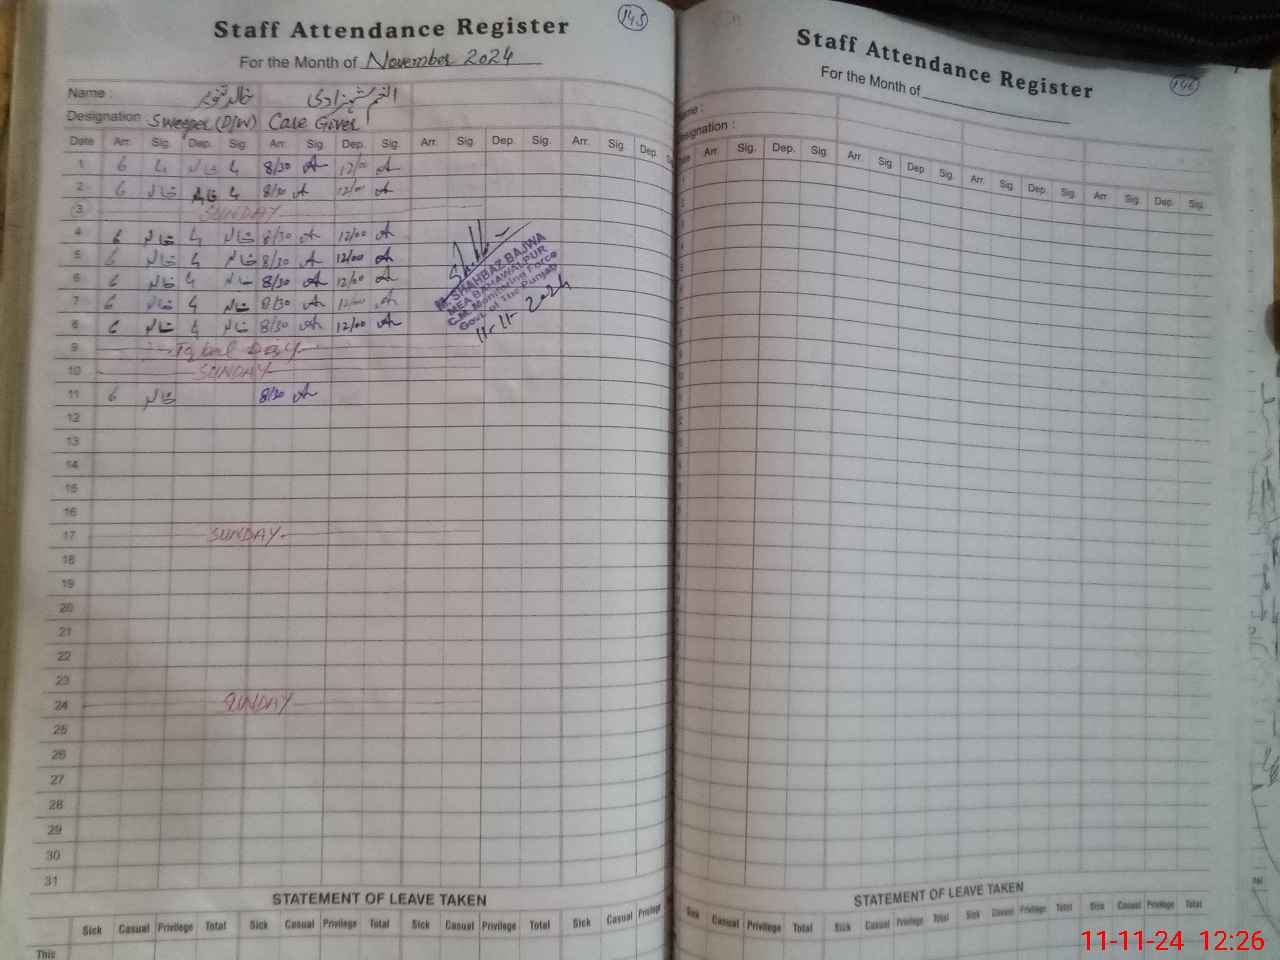 145
Staff Attendance Register
For the Month of November 2024
Name : خالد
Designation Sweeper (D/W) Care Giver
Date Arr. Sig. Dep. Sig. Arr. Sig. Dep. Sig. Arr. Sig. Dep. Sig. Arr. Sig. Dep.
1 6 8/30 12/00
2 6 خالد خالد 8/30 12/00
3 SUNDAY
4 6 خالد خالد 8/30 12/00
5 6 خالد خالد 8/30 12/00
6 6 خالد خالد 8/30 12/00
7 6 خالد خالد 8/30 12/00
8 6 خالد خالد 8/30 12/00
M. SHAHBAZ BAJWA
MEA BAHAWALPUR
C.M. Monitoring Force
Govt. of The Punjab
11-11-2024
9 Iqbal Day
10 SUNDAY
11 6 خالد 8/30
12
13
14
15
16
17 SUNDAY
18
19
20
21
22
23
24 SUNDAY
25
26
27
28
29
30
31
STATEMENT OF LEAVE TAKEN
Sick Casual Privilege Total Sick Casual Privilege Total Sick Casual Privilege Total Sick Casual Privilege
This
146
Staff Attendance Register
For the Month of
Name :
Designation :
Date Arr. Sig. Dep. Sig. Arr. Sig. Dep Sig. Arr. Sig. Dep. Sig. Arr. Sig. Dep. Sig.
STATEMENT OF LEAVE TAKEN
Sick Casual Privilege Total Sick Casual Privilege Total Sick Casual Privilege Total Sick Casual Privilege Total
11-11-24 12:26